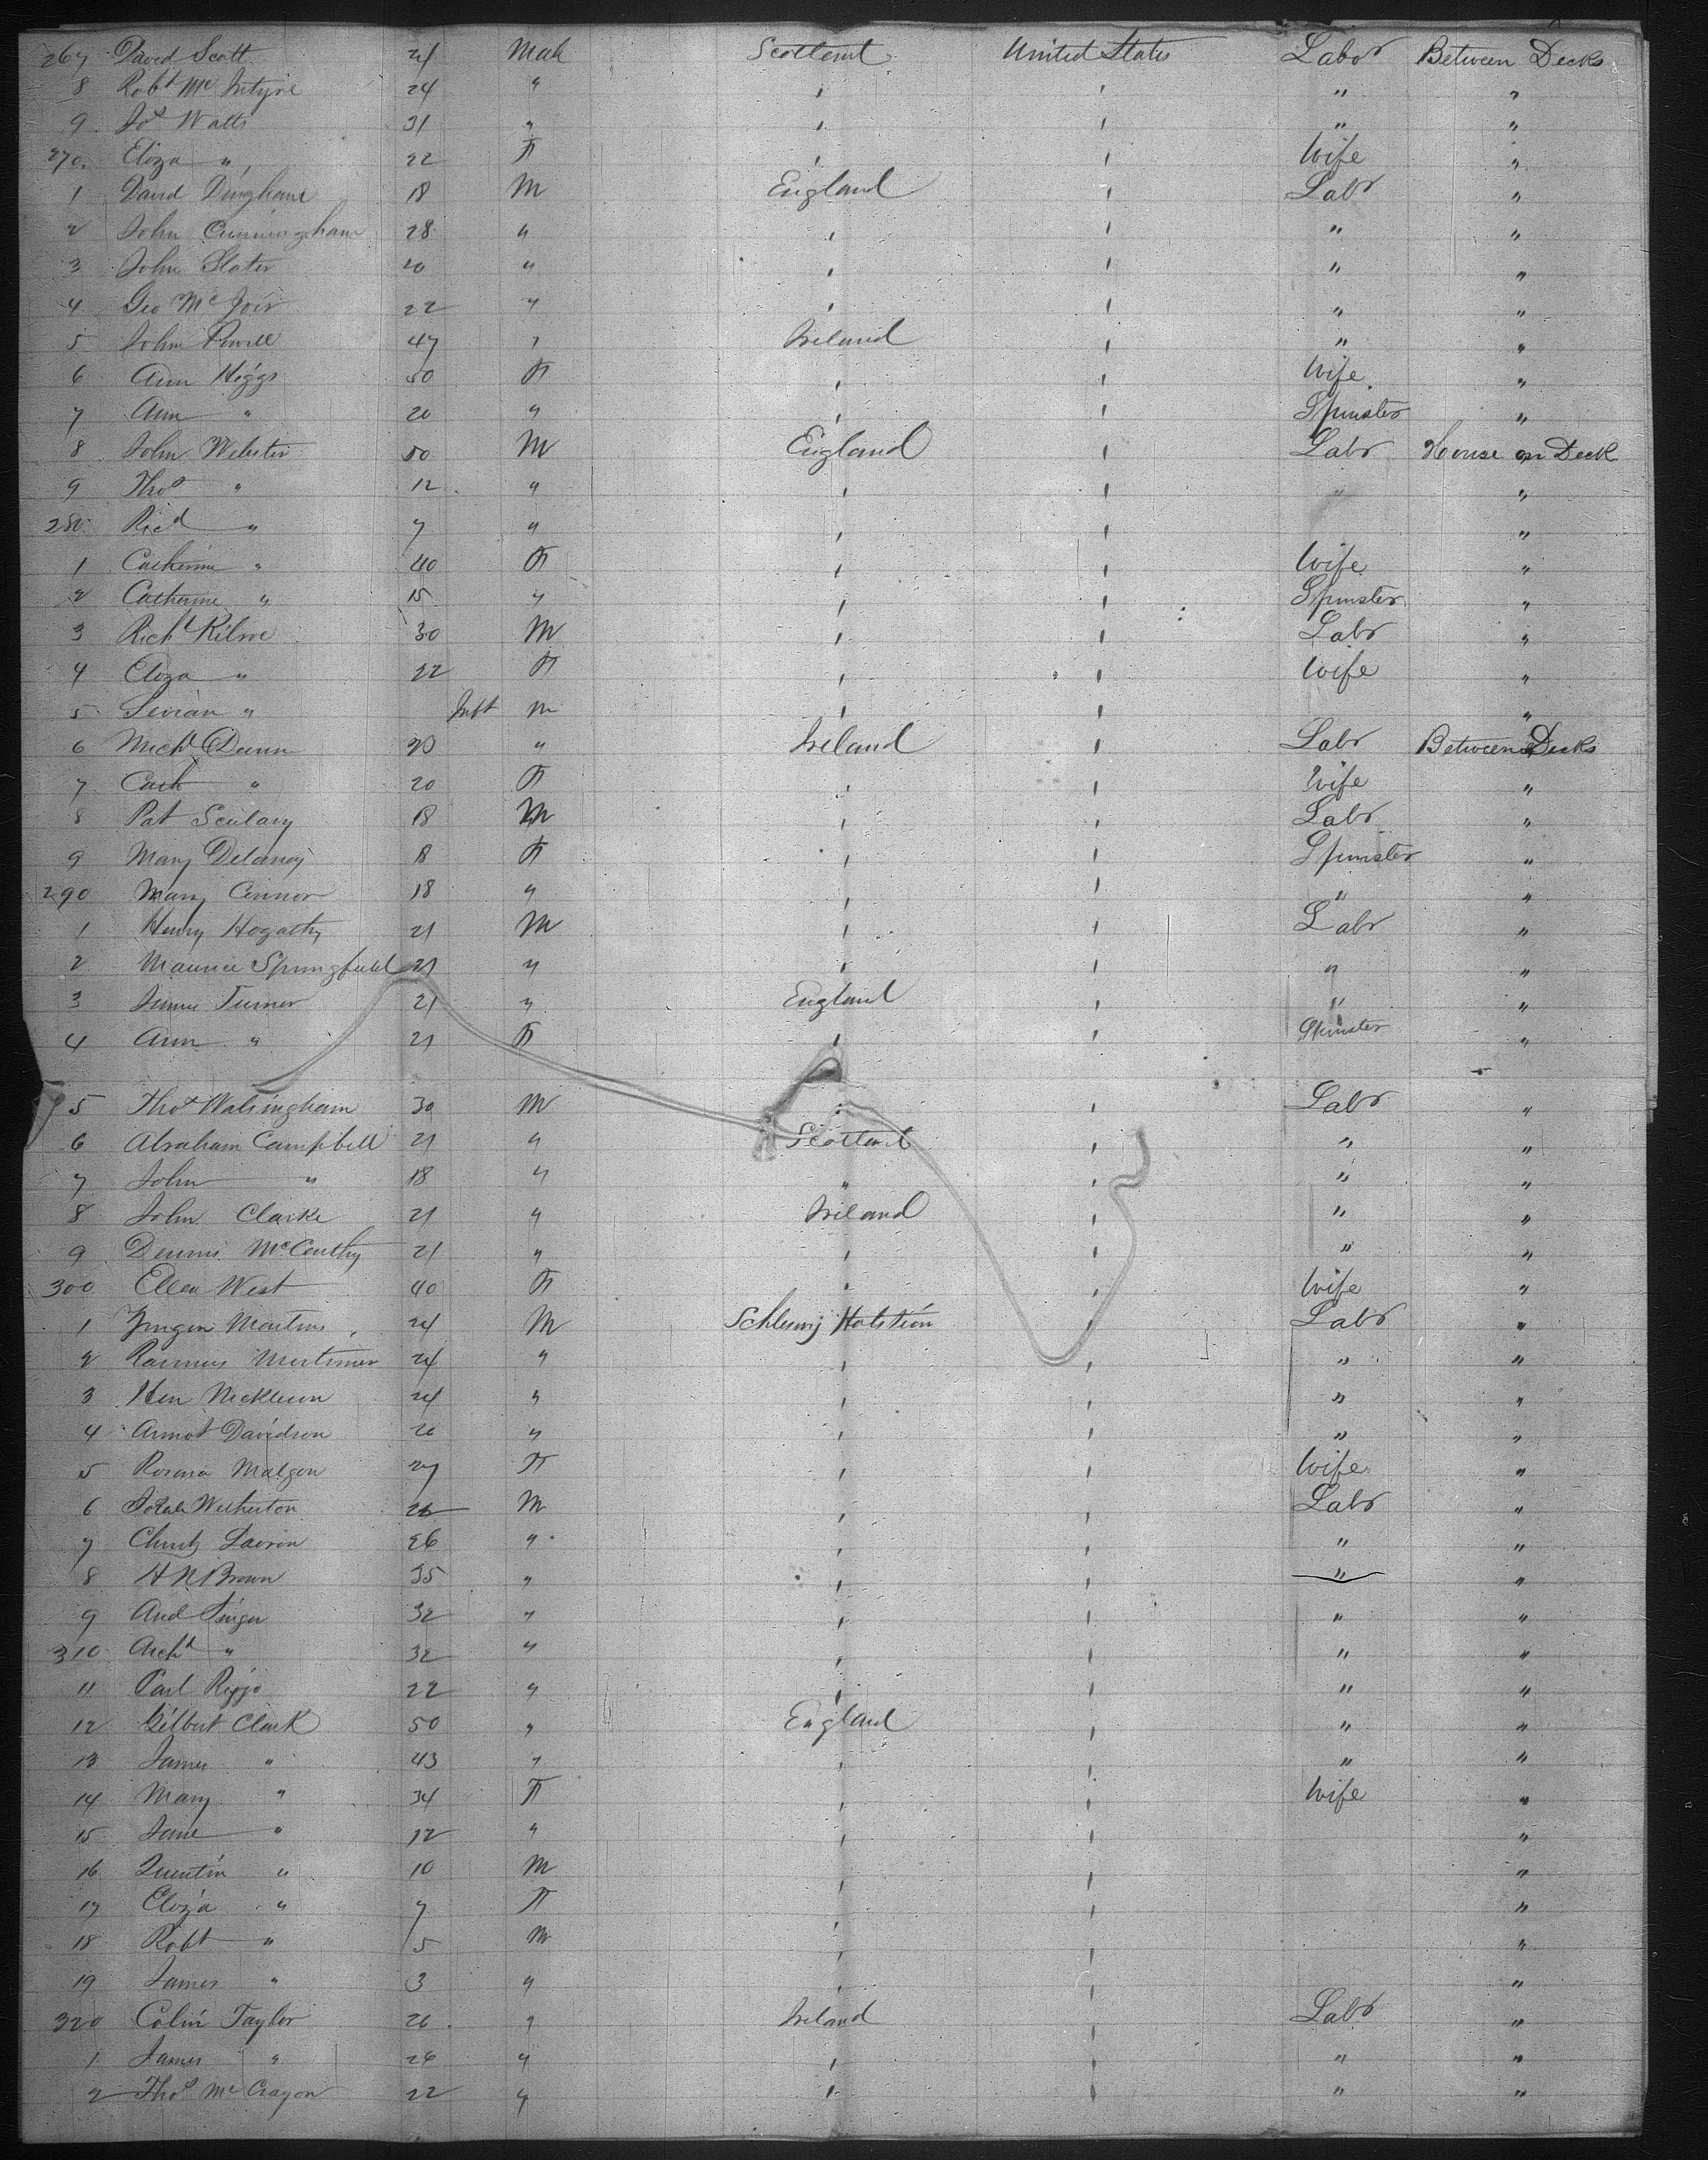 267 David Scott 24 Male Scotland United States Labor Between Decks
8 Robt McIntyre 24 " " " " "
9 Jos Watts 31 " " " " "
270 Eliza " 22 F " " Wife "
1 David Dingham 18 M England " Labr "
2 John Cunningham 28 " " " " "
3 John Slater 20 " " " " "
4 Geo 22 " " " " "
5 John Powell 47 " Ireland " " "
6 Ann Higgs 50 F " " Wife "
7 Ann " 20 " " " Spinster "
8 John Webster 50 M England " Labr House on Deck
9 Thos " 12 " " " " "
280 Ricd " 7 " " " "
1 Catherine " 40 F " " Wife "
2 Catherine " 15 " " " Spinster "
3 Richd 30 M " " Labr "
4 Eliza " 22 F " " Wife "
5 " Inft M " " "
6 Michl Dunn 30 " Ireland " Labr Between Decks
7 Cath " 20 F " " Wife "
8 Pat 18 M " " Labr "
9 Mary Delaney 18 F " " Spinster "
290 Mary Connor 18 " " " " "
1 Henry Hogathy 21 M " " Labr "
2 Maurice Springfield 21 " " " " "
3 Turner 21 " England " " "
4 Ann " 21 F " " Spinster "
5 Thos Walsingham 30 M " " Labr "
6 Abraham Campbell 21 " Scotland " " "
7 John " 18 " " " " "
8 John Clarke 21 " Ireland " " "
9 Dennis McCarthy 21 " " " " "
300 Ellen West 40 F " " Wife "
1 24 M Schleswig Holstein " Labr "
2 Rasmus Mortimer 24 " " " " "
3 24 " " " " "
4 Davidson 26 " " " " "
5 27 F " " Wife "
6 26 M " " Labr "
7 26 " " " " "
8 H N Brown 35 " " " " "
9 And Singer 32 " " " " "
310 Archd " 32 " " " " "
11 22 " " " " "
12 Gilbert Clark 50 " England " " "
13 James " 43 " " " " "
14 Mary " 34 F " " Wife "
15 Jane " 12 " " " "
16 Quentin " 10 M " " "
17 Eliza " 7 F " " "
18 Robt " 5 M " " "
19 James " 3 " " " "
320 Colin Taylor 26 " Ireland " Labr "
1 James " 26 " " " " "
2 Thos McCrayon 22 " " " " "